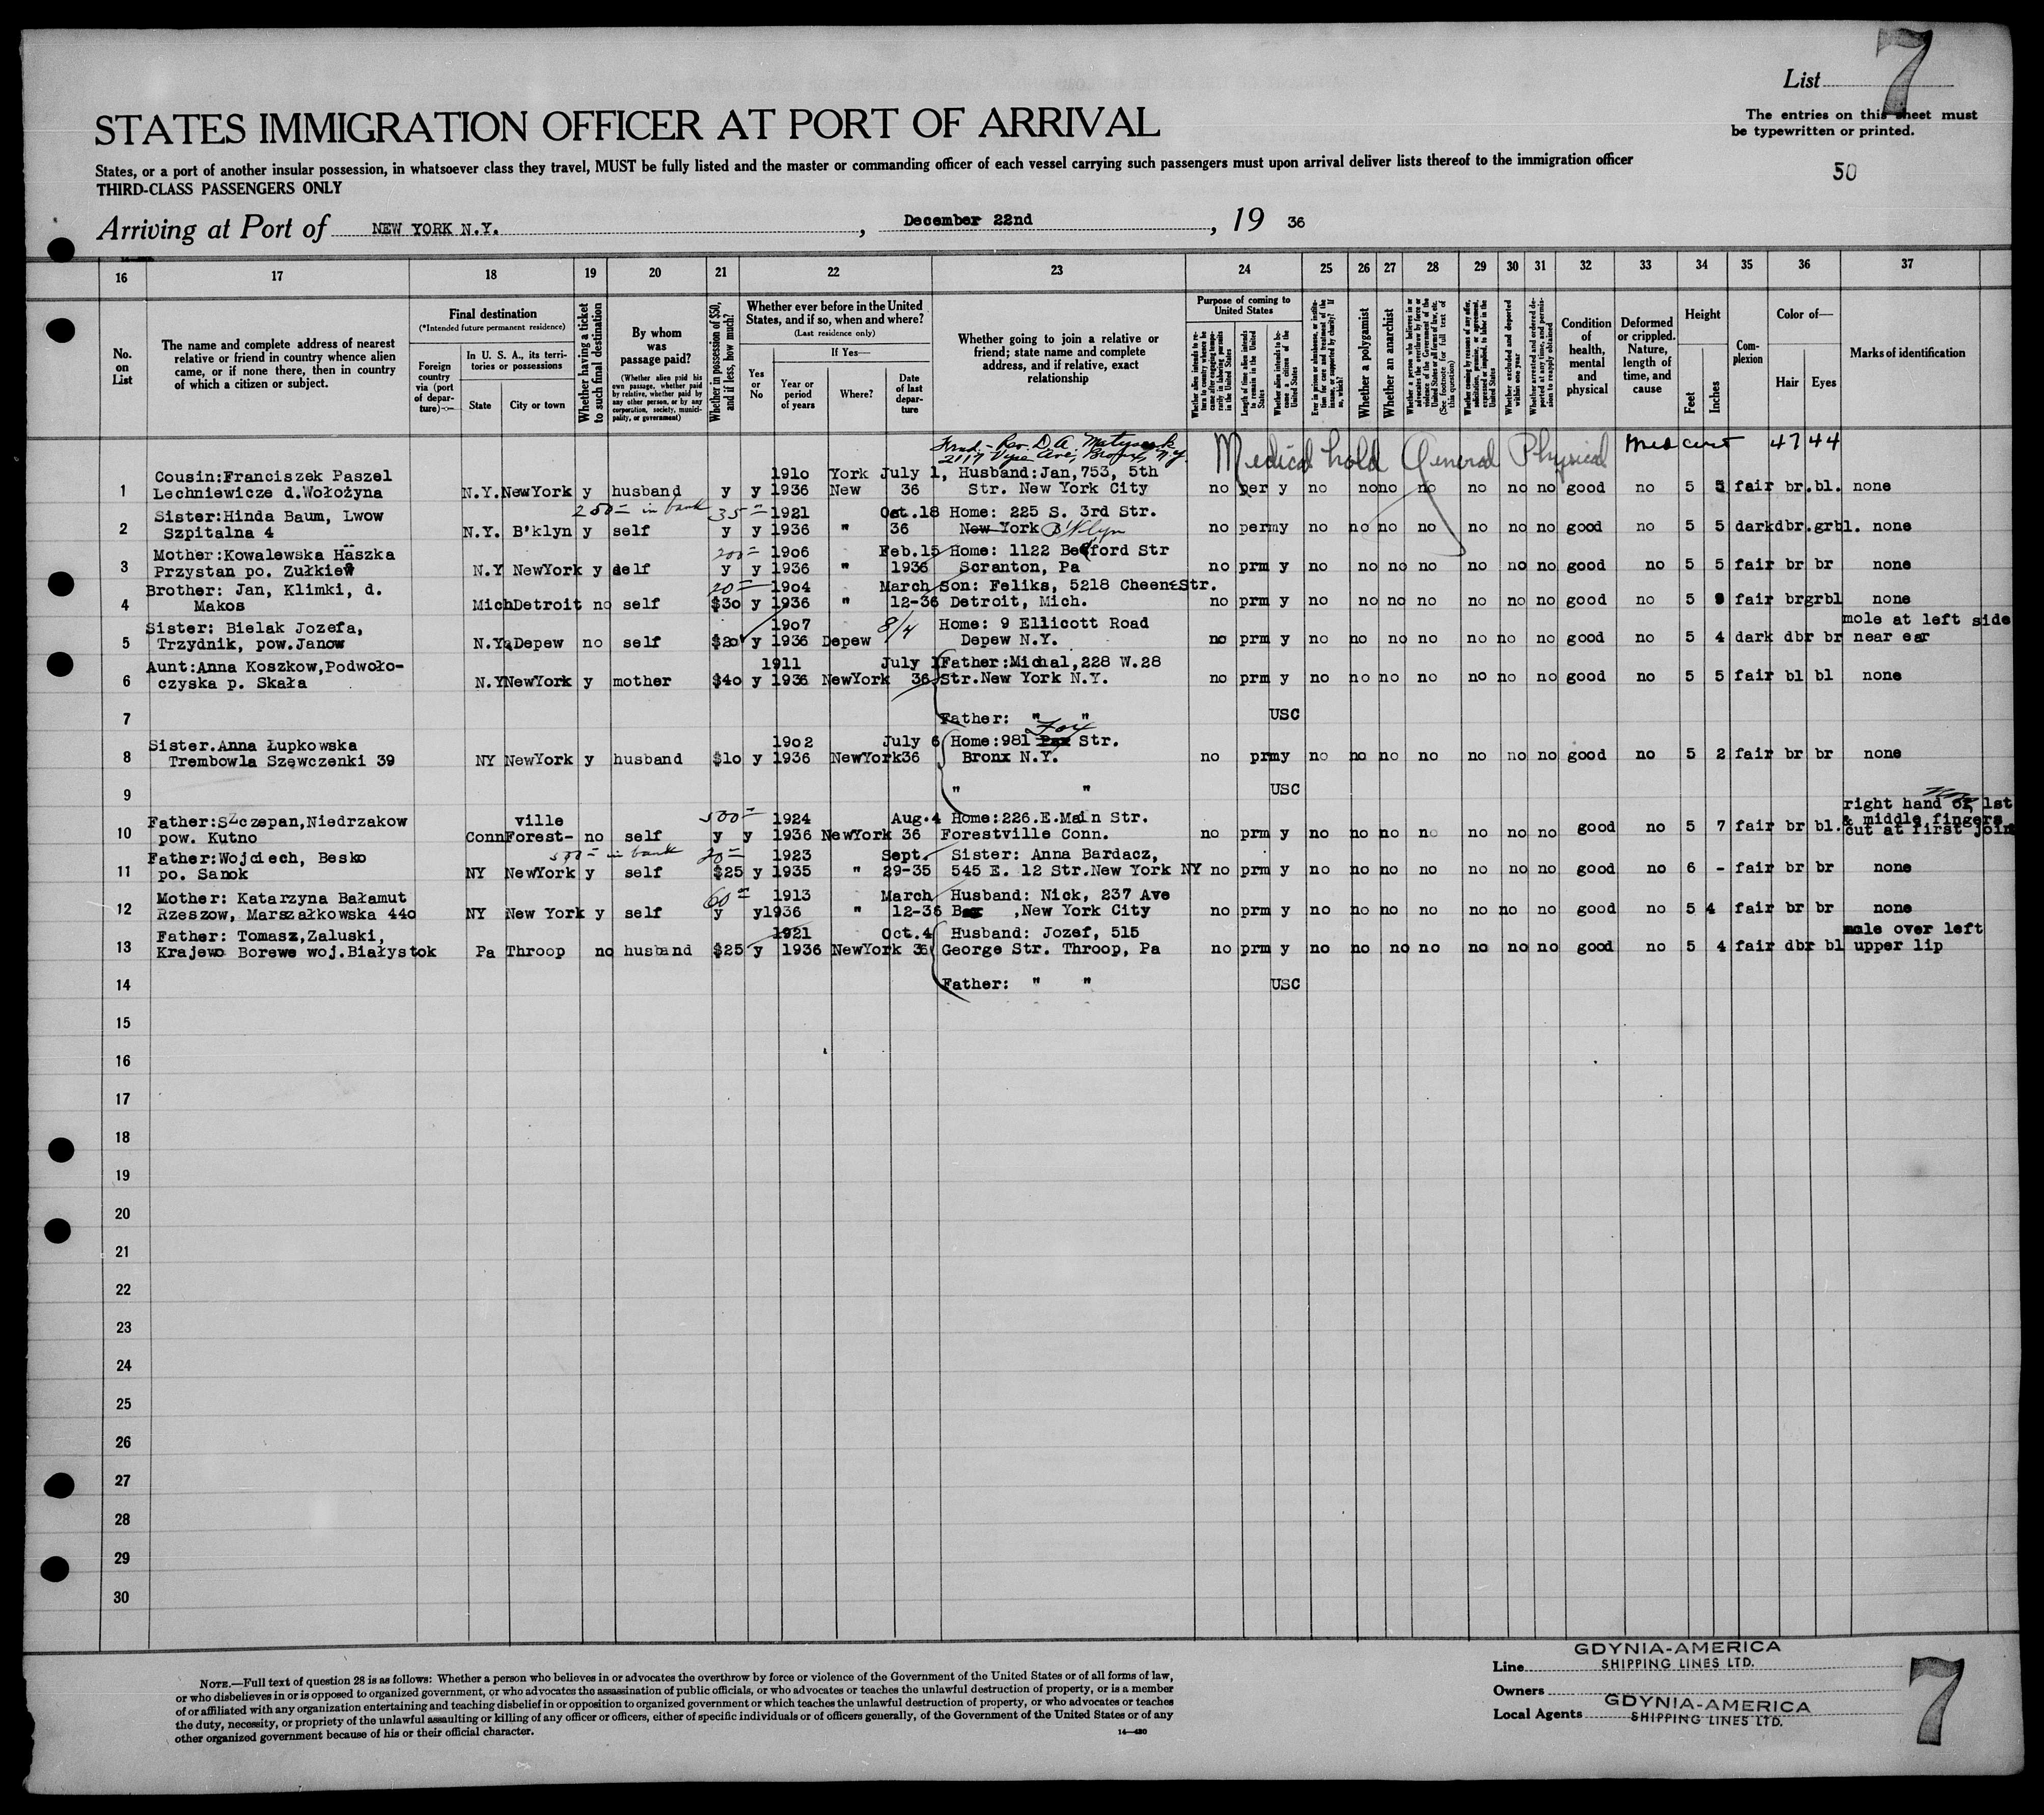 List 7
The entries on this sheet must
be typewritten or printed.
STATES IMMIGRATION OFFICER AT PORT OF ARRIVAL
50
States, or a port of another insular possession, in whatsoever class they travel, MUST be fully listed and the master or commanding officer of each vessel carrying such passengers must upon arrival deliver lists thereof to the immigration officer
THIRD-CLASS PASSENGERS ONLY
Arriving at Port of NEW YORK N.Y. , December 22nd , 19 36
16 17 18 19 20 21 22 23 24 25 26 27 28 29 30 31 32 33 34 35 36 37
No. on List
The name and complete address of nearest
relative or friend in country whence alien
came, or if none there, then in country
of which a citizen or subject.
Final destination
(*Intended future permanent residence)
Foreign country via (port of departure)
In U. S. A., its territories or possessions
State
City or town
Whether having a ticket to such final destination
By whom was passage paid?
(Whether alien paid his own passage, whether paid by relative, whether paid by any other person, or by any corporation, society, municipality, or government)
Whether in possession of $50, and if less, how much?
Whether ever before in the United States, and if so, when and where?
(Last residence only)
Yes or No
If Yes—
Year or period of years
Where?
Date of last departure
Whether going to join a relative or
friend; state name and complete
address, and if relative, exact
relationship
Purpose of coming to United States
Length of time alien intends to remain in the United States
Whether alien intends to become a citizen of the United States
Whether a polygamist
Whether an anarchist
Whether excluded and deported within one year
Condition of health, mental and physical
Deformed or crippled. Nature, length of time, and cause
Height
Feet
Inches
Complexion
Color of—
Hair
Eyes
Marks of identification
2117 Vyse Ave, N.Y.
Medical hold General Physical Med cert 4744
Cousin:Franciszek Paszel 1910 York July 1, Husband:Jan,753, 5th
1 Lechniewicze d.Wołożyna N.Y. NewYork y husband y y 1936 New 36 Str. New York City no per y no no no no no no no good no 5 5 fair br. bl. none
250 = in bank 35 =
Sister:Hinda Baum, Lwow 1921 Oct.18 Home: 225 S. 3rd Str.
2 Szpitalna 4 N.Y. B'klyn y self y y 1936 " 36 New York B'klyn no perm y no no no no no no no good no 5 5 dark dbr. grbl. none
Mother:Kowalewska Häszka 200= 1906 Feb.15 Home: 1122 Bedford Str
3 Przystan po. Zułkiew N.Y NewYork y self y y 1936 " 1936 Scranton, Pa no prm y no no no no no no no good no 5 5 fair br br none
Brother: Jan, Klimki, d. 20= 1904 March Son: Feliks, 5218 Cheene Str.
4 Makos Mich Detroit no self $30 y 1936 " 12-36 Detroit, Mich. no prm y no no no no no no no good no 5 fair br grbl none
Sister: Bielak Jozefa, 1907 8/4 Home: 9 Ellicott Road mole at left side
5 Trzydnik, pow.Janow N.Y. Depew no self $20 y 1936 Depew Depew N.Y. no prm y no no no no no no no good no 5 4 dark dbr br near ear
Aunt:Anna Koszkow,Podwoło- 1911 July 1 Father:Michal,228 W.28
6 czyska p. Skała N.Y NewYork y mother $40 y 1936 NewYork 36 Str.New York N.Y. no prm y no no no no no no no good no 5 5 fair bl bl none
7 Father: " " USC
Fox
Sister.Anna Łupkowska 1902 July 6 Home:981 Str.
8 Trembowla Szewczenki 39 NY NewYork y husband $10 y 1936 NewYork 36 Bronx N.Y. no prm y no no no no no no no good no 5 2 fair br br none
9 " " USC
Father:Szczepan,Niedrzakow ville 500= 1924 Aug.4 Home:226.E.Main Str. right hand of 1st & middle fingers
10 pow. Kutno Conn Forest- no self y y 1936 NewYork 36 Forestville Conn. no prm y no no no no no no no good no 5 7 fair br bl. cut at first joint
500= in bank 20=
Father:Wojciech, Besko 1923 Sept. Sister: Anna Bardacz,
11 po. Sanok NY NewYork y self $25 y 1935 " 29-35 545 E. 12 Str.New York NY no prm y no no no no no no no good no 6 - fair br br none
Mother: Katarzyna Bałamut 60= 1913 March Husband: Nick, 237 Ave
12 Rzeszow, Marszałkowska 44o NY New York y self y y 1936 " 12-36 ,New York City no prm y no no no no no no no good no 5 4 fair br br none
Father: Tomasz,Zaluski, 1921 Oct.4 Husband: Jozef, 515 mole over left
13 Krajewo Borewe woj.Białystok Pa Throop no husband $25 y 1936 NewYork 36 George Str. Throop, Pa no prm y no no no no no no no good no 5 4 fair dbr bl upper lip
14 Father: " " USC
15
16
17
18
19
20
21
22
23
24
25
26
27
28
29
30
NOTE.—Full text of question 28 is as follows: Whether a person who believes in or advocates the overthrow by force or violence of the Government of the United States or of all forms of law,
or who disbelieves in or is opposed to organized government, or who advocates the assassination of public officials, or who advocates or teaches the unlawful destruction of property, or is a member
of or affiliated with any organization entertaining and teaching disbelief in or opposition to organized government or which teaches the unlawful destruction of property, or who advocates or teaches
the duty, necessity, or propriety of the unlawful assaulting or killing of any officer or officers, either of specific individuals or of officers generally, of the Government of the United States or of any
other organized government because of his or their official character.
14—430
Line GDYNIA-AMERICA SHIPPING LINES LTD.
Owners
Local Agents GDYNIA-AMERICA SHIPPING LINES LTD.
7